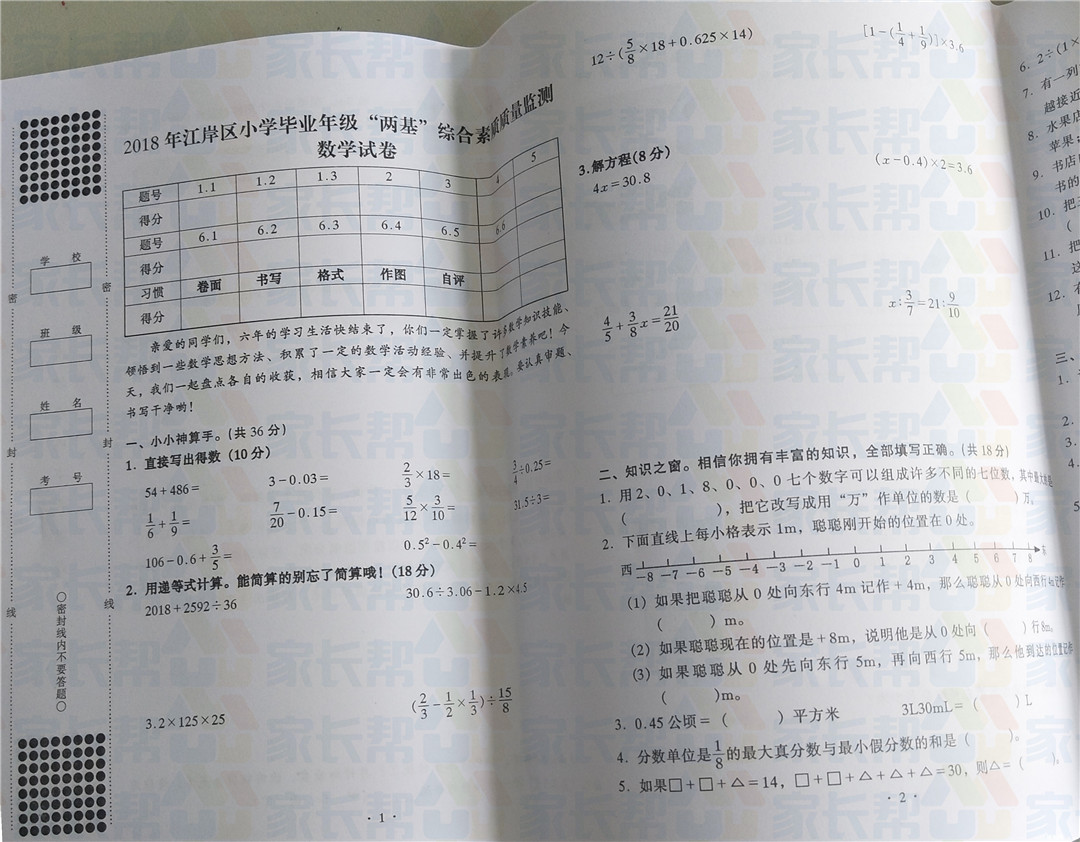 2018年江岸区小学毕业年级“两基”综合素质质量监测
数学试卷
题号 1.1 1.2 1.3 2 3 4 5
得分
题号 6.1 6.2 6.3 6.4 6.5 6.6
得分
习惯 卷面 书写 格式 作图 自评
得分
学 校
班 级
姓 名
考 号
密
封
线
密
封
线
○密封线内不要答题○
亲爱的同学们，六年的学习生活快结束了，你们一定掌握了许多数学知识技能、
领悟到一些数学思想方法、积累了一定的数学活动经验、并提升了数学素养吧！今
天，我们一起盘点各自的收获，相信大家一定会有非常出色的表现。要认真审题、
书写干净哟！
一、小小神算手。(共36分)
1. 直接写出得数（10分）
54+486= 3-0.03= 2/3×18= 3/4÷0.25=
1/6+1/9= 7/20-0.15= 5/12×3/10= 31.5÷3=
106-0.6+3/5= 0.5²-0.4²=
2. 用递等式计算。能简算的别忘了简算哦！(18分)
2018+2592÷36 30.6÷3.06-1.2×4.5
3.2×125×25 (2/3-1/2×1/3)÷15/8
·1·
12÷(5/8×18+0.625×14) [1-(1/4+1/9)]×3.6
3.解方程(8分)
4x=30.8 (x-0.4)×2=3.6
4/5+3/8x=21/20 x:3/7=21:9/10
二、知识之窗。相信你拥有丰富的知识，全部填写正确。(共18分)
1. 用2、0、1、8、0、0、0七个数字可以组成许多不同的七位数，其中最大的是
( )，把它改写成用“万”作单位的数是( )万。
2. 下面直线上每小格表示1m，聪聪刚开始的位置在0处。
西 -8 -7 -6 -5 -4 -3 -2 -1 0 1 2 3 4 5 6 7 8 东
(1) 如果把聪聪从0处向东行4m记作+4m，那么聪聪从0处向西行4m记作
( )m。
(2) 如果聪聪现在的位置是+8m，说明他是从0处向( )行8m。
(3) 如果聪聪从0处先向东行5m，再向西行5m，那么他到达的位置记作
( )m。
3. 0.45公顷=( )平方米 3L30mL=( )L
4. 分数单位是1/8的最大真分数与最小假分数的和是( )。
5. 如果□+□+△=14，□+□+△+△+△=30，则△=( )。
·2·
6. 2÷(1×
7. 有一列
越接近
8. 水果店
苹果
9. 书店
书的
10. 把
(
11. 把
这
12.
三、
1.
2.
3.
4.
5
家长帮